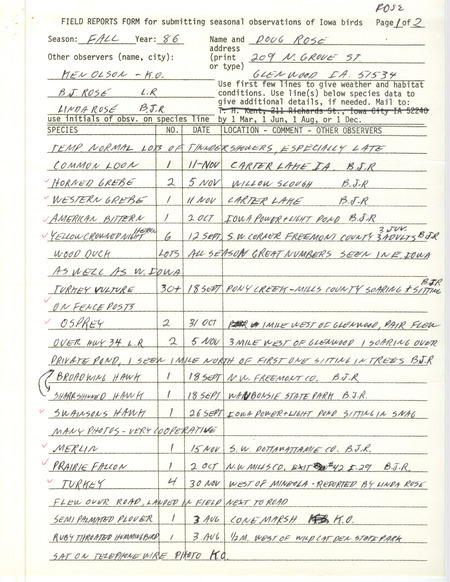 ROSE
FIELD REPORTS FORM for submitting seasonal observations of Iowa birds Page 1 of 2
Season: FALL Year: 86 Name and address (print or type) DOUG ROSE
209 N. GROVE ST
GLENWOOD IA. 51534
Other observers (name, city):
KEN OLSON - K.O.
B.J ROSE B.J.R
LINDA ROSE L.R
use initials of obsv. on species line
Use first few lines to give weather and habitat conditions. Use line(s) below species data to give additional details, if needed. Mail to:
T. H. Kent, 211 Richards St., Iowa City IA 52240
by 1 Mar, 1 Jun, 1 Aug, or 1 Dec.
SPECIES NO. DATE LOCATION - COMMENT - OTHER OBSERVERS
TEMP NORMAL LOTS OF THUNDERSHOWERS, ESPECIALLY LATE
COMMON LOON 1 11-NOV CARTER LAKE IA. B.J.R
HORNED GREBE 2 5 NOV WILLOW SLOUGH B.J.R
WESTERN GREBE 1 11 NOV CARTER LAKE B.J.R
AMERICAN BITTERN 1 2 OCT IOWA POWER & LIGHT POND B.J.R
YELLOW CROWNED NIGHT HERON 6 12 SEPT S.W. CORNER FREEMONT COUNTY 3 JUV. 3 ADULTS B.J.R
WOOD DUCK LOTS ALL SEASON GREAT NUMBERS SEEN IN E. IOWA
AS WELL AS W. IOWA
TURKEY VULTURE 30+ 18 SEPT PONY CREEK - MILLS COUNTY SOARING & SITTING B.J.R
ON FENCE POSTS
OSPREY 2 31 OCT 1 MILE WEST OF GLENWOOD, PAIR FLEW
OVER HWY 34 L.R 2 5 NOV 3 MILE WEST OF GLENWOOD 1 SOARING OVER
PRIVATE POND, 1 SEEN 1 MILE NORTH OF FIRST ONE SITTING IN TREES B.J.R
BROADWING HAWK 1 18 SEPT N.W. FREEMONT CO. B.J.R
SHARPSHINNED HAWK 1 18 SEPT WABONSIE STATE PARK B.J.R.
SWANSONS HAWK 1 26 SEPT IOWA POWER & LIGHT POND SITTING IN SNAG
MANY PHOTOS - VERY COOPERATIVE
MERLIN 1 15 NOV S.W. POTTAWATTAMIE CO. B.J.R.
PRAIRIE FALCON 1 2 OCT N.W. MILLS CO, EXIT 42 I-29 B.J.R.
TURKEY 4 30 NOV WEST OF MINEOLA - REPORTED BY LINDA ROSE
FLEW OVER ROAD, LANDED IN FIELD NEXT TO ROAD
SEMIPALMATED PLOVER 1 3 AUG CONE MARSH K.O.
RUBY THROATED HUMMINGBIRD 1 3 AUG 1/2 M. WEST OF WILDCAT DEN STATE PARK
SAT ON TELEPHONE WIRE PHOTO K.O.